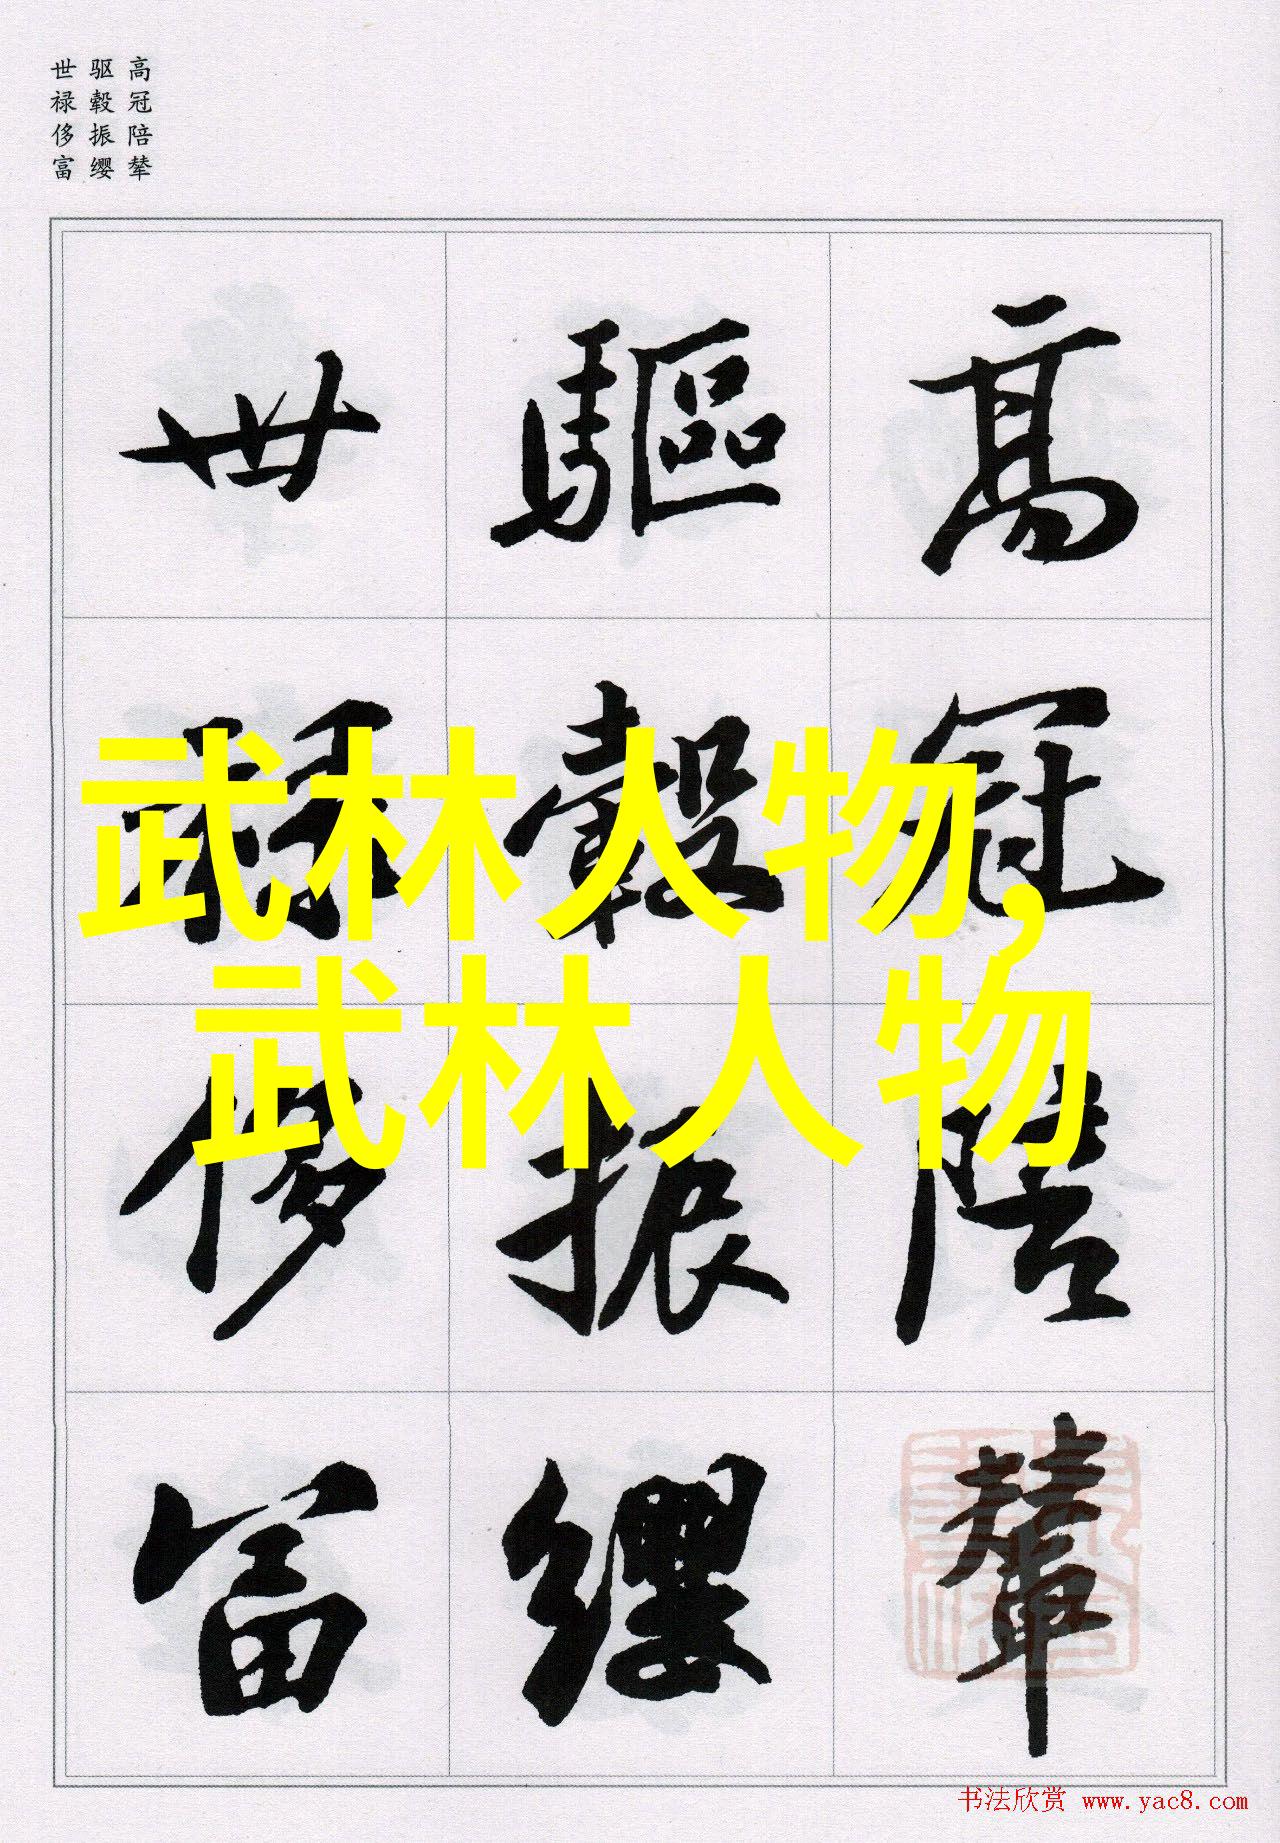 高冠陪辇
驱毂振缨
世禄侈富
高冠陪輦
驅轂振纓
世禄侈富
武林人物,
武林人物
书法欣赏 www.yac8.com